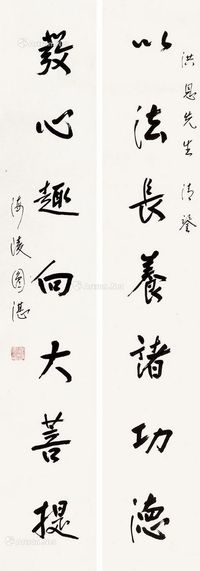 洪恩先生 清鉴
以法長養諸功德
發心趣向大菩提
海陵圓湛